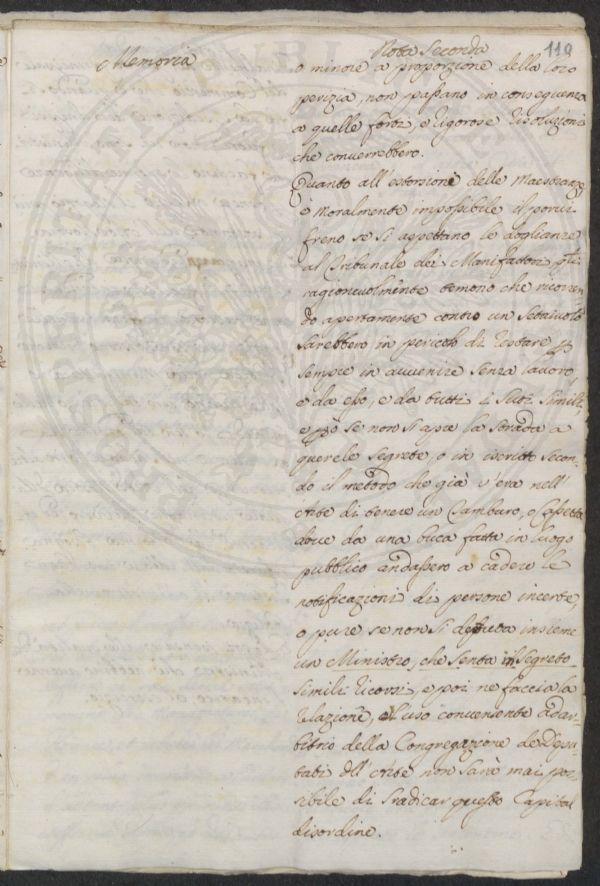 119
Memoria
Nota Seconda
o minore a proporzione della loro
perizia, non passano in conseguenza
a quelle forti, e rigorose risoluzioni
che converrebbero.
Quanto all'estorsione delle Maestranze
è moralmente impossibile il porvi
freno se si aspettano le doglianze
al Tribunale dei Manifattori
ragionevolmente temono che ricorren-
do apertamente contro un Setaiuolo
sarebbero in pericolo di restare p
sempre in avvenire senza lavoro
e da esso, e da tutti i suoi simili
e però se non si apre la strada a
querele segrete, o in iscritto secon-
do il metodo che già v'era nell'
Arte di tenere un Tamburo, o Cassetta
dove da una buca fatta in luogo
pubblico andassero a cadere le
notificazioni di persone incerte,
o pure se non si deputa insieme
un Ministro, che senta in segreto
simili ricorsi, e poi ne faccia la
relazione, e l'uso conveniente ad ar-
bitrio della Congregazione de Depu-
tati dell'Arte non sarà mai pos-
sibile di sradicar questo Capital
disordine.